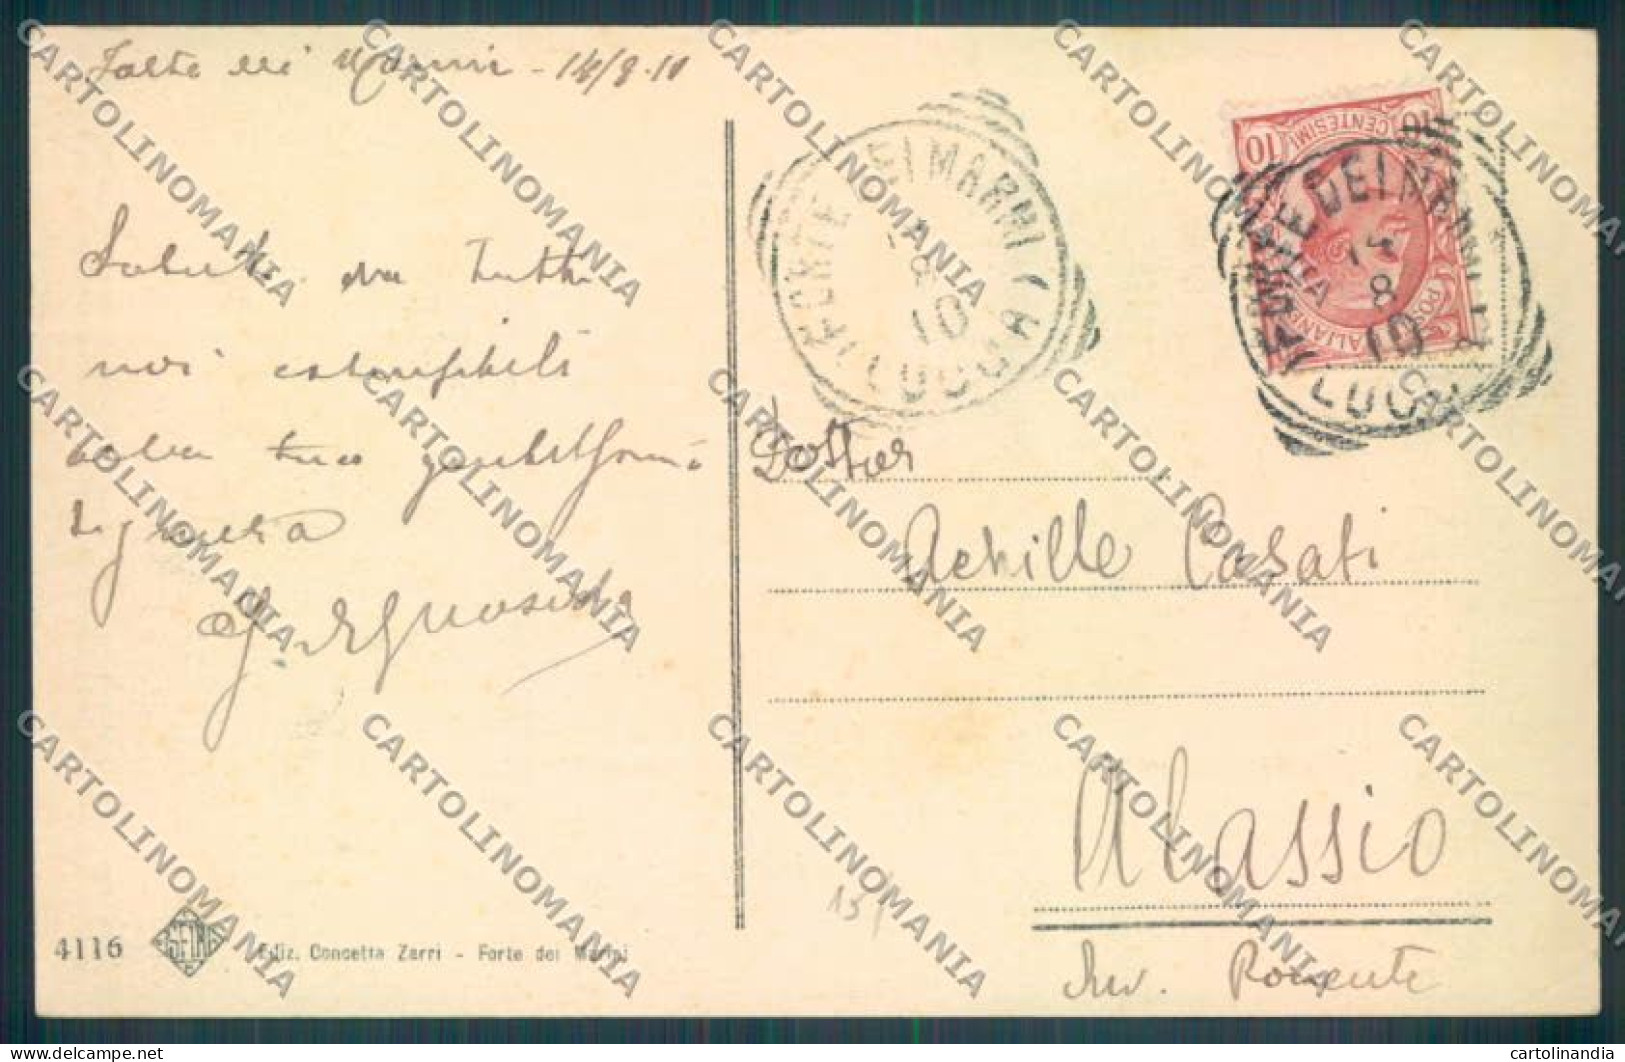 Forte dei Marmi - 14/8.10
Saluti da tutti
noi
alla tua gentilissima
Signora
FORTE DEI MARMI
8
10
LUCCA
10 CENTESIMI 10
POSTE ITALIANE
FORTE DEI MARMI
14
8
10
LUCCA
Dottor
Achille Casati
Alassio
Riv. Ponente
15
4116
Ediz. Concetta Zarri - Forte dei Marmi
CARTOLINOMANIA
cartolinandia